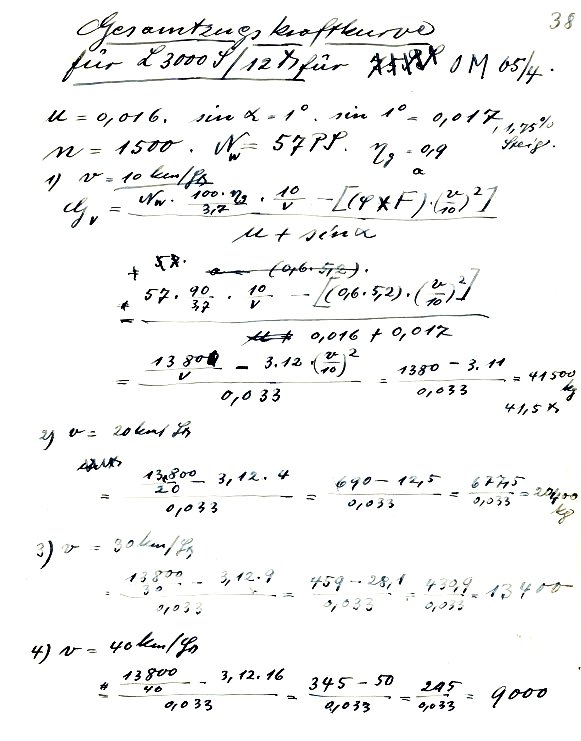 38
Gesamtzugskraftkurve
für L 3000 S/12 t für OM 65/4.
μ = 0,016. sin α = 1°. sin 1° = 0,017, 1,75%
n = 1500. Nw = 57 PS. ηg = 0,9 Steig.
1) v = 10 km/Std
Gv = (Nw · 100·ηg/3,7 · 10/v − [(φ × F)·(v/10)²]) / (μ + sin α)
= (57 · 90/3,7 · 10/v − [(0,6·5,2)·(v/10)²]) / (0,016 + 0,017)
= (13800/v − 3.12·(v/10)²) / 0,033 = (1380 − 3.11) / 0,033 = 41500 kg
41,5 t
2) v = 20 km/Std
= (13,800/20 − 3,12·4) / 0,033 = (690 − 12,5) / 0,033 = 677,5 / 0,033 = 20400 kg
3) v = 30 km/Std
= (13800/30 − 3,12·9) / 0,033 = (459 − 28,1) / 0,033 = 430,9 / 0,033 = 13400
4) v = 40 km/Std
= (13800/40 − 3,12·16) / 0,033 = (345 − 50) / 0,033 = 295 / 0,033 = 9000